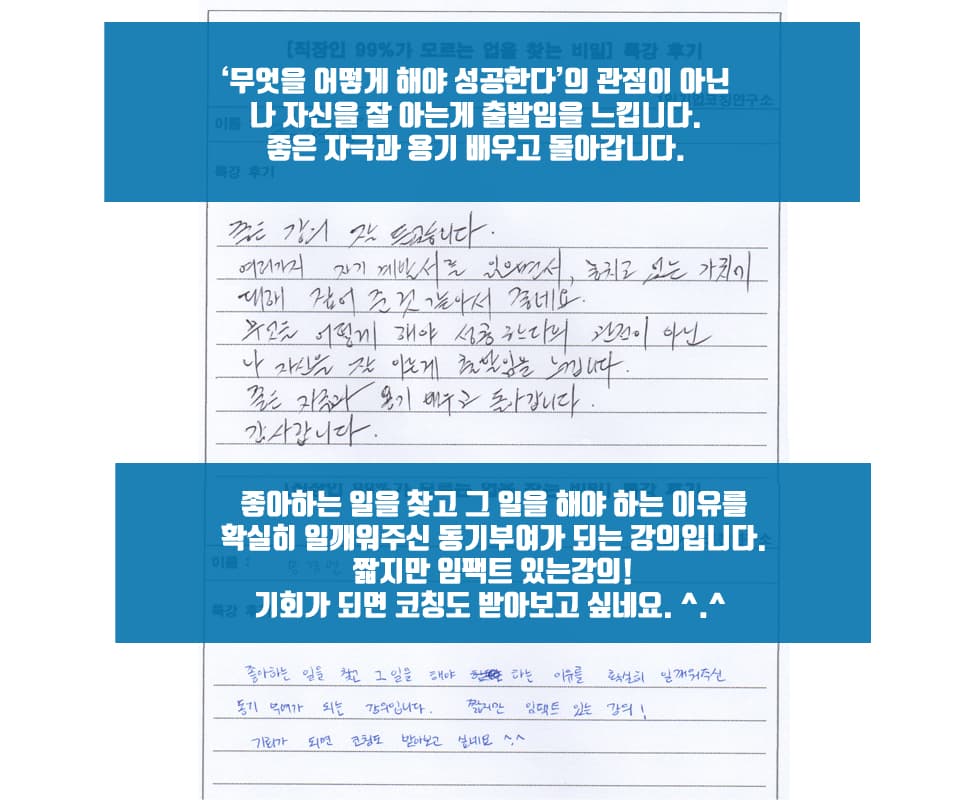 [직장인 99%가 모르는 업을 찾는 비밀] 특강 후기
‘무엇을 어떻게 해야 성공한다’의 관점이 아닌
나 자신을 잘 아는게 출발임을 느낍니다.
좋은 자극과 용기 배우고 돌아갑니다.
기업코칭연구소
이름
특강 후기
좋은 강의 잘 듣고갑니다.
여러가지 자기계발서를 읽으면서, 놓치고 있는 가치에
대해 잡어 준것 같아서 좋네요.
무엇을 어떻게 해야 성공한다의 관점이 아닌
나 자신을 잘 아는게 출발임을 느낍니다.
좋은 자극과 용기 배우고 돌아갑니다.
감사합니다.
특강 후기
좋아하는 일을 찾고 그 일을 해야 하는 이유를
확실히 일깨워주신 동기부여가 되는 강의입니다.
짧지만 임팩트 있는강의!
기회가 되면 코칭도 받아보고 싶네요. ^.^
이름 :
특강 후
좋아하는 일을 찾고 그 일을 해야 하는 이유를 확실히 일깨워주신
동기 부여가 되는 강의입니다. 짧지만 임팩트 있는 강의!
기회가 되면 코칭도 받아보고 싶네요 ^.^